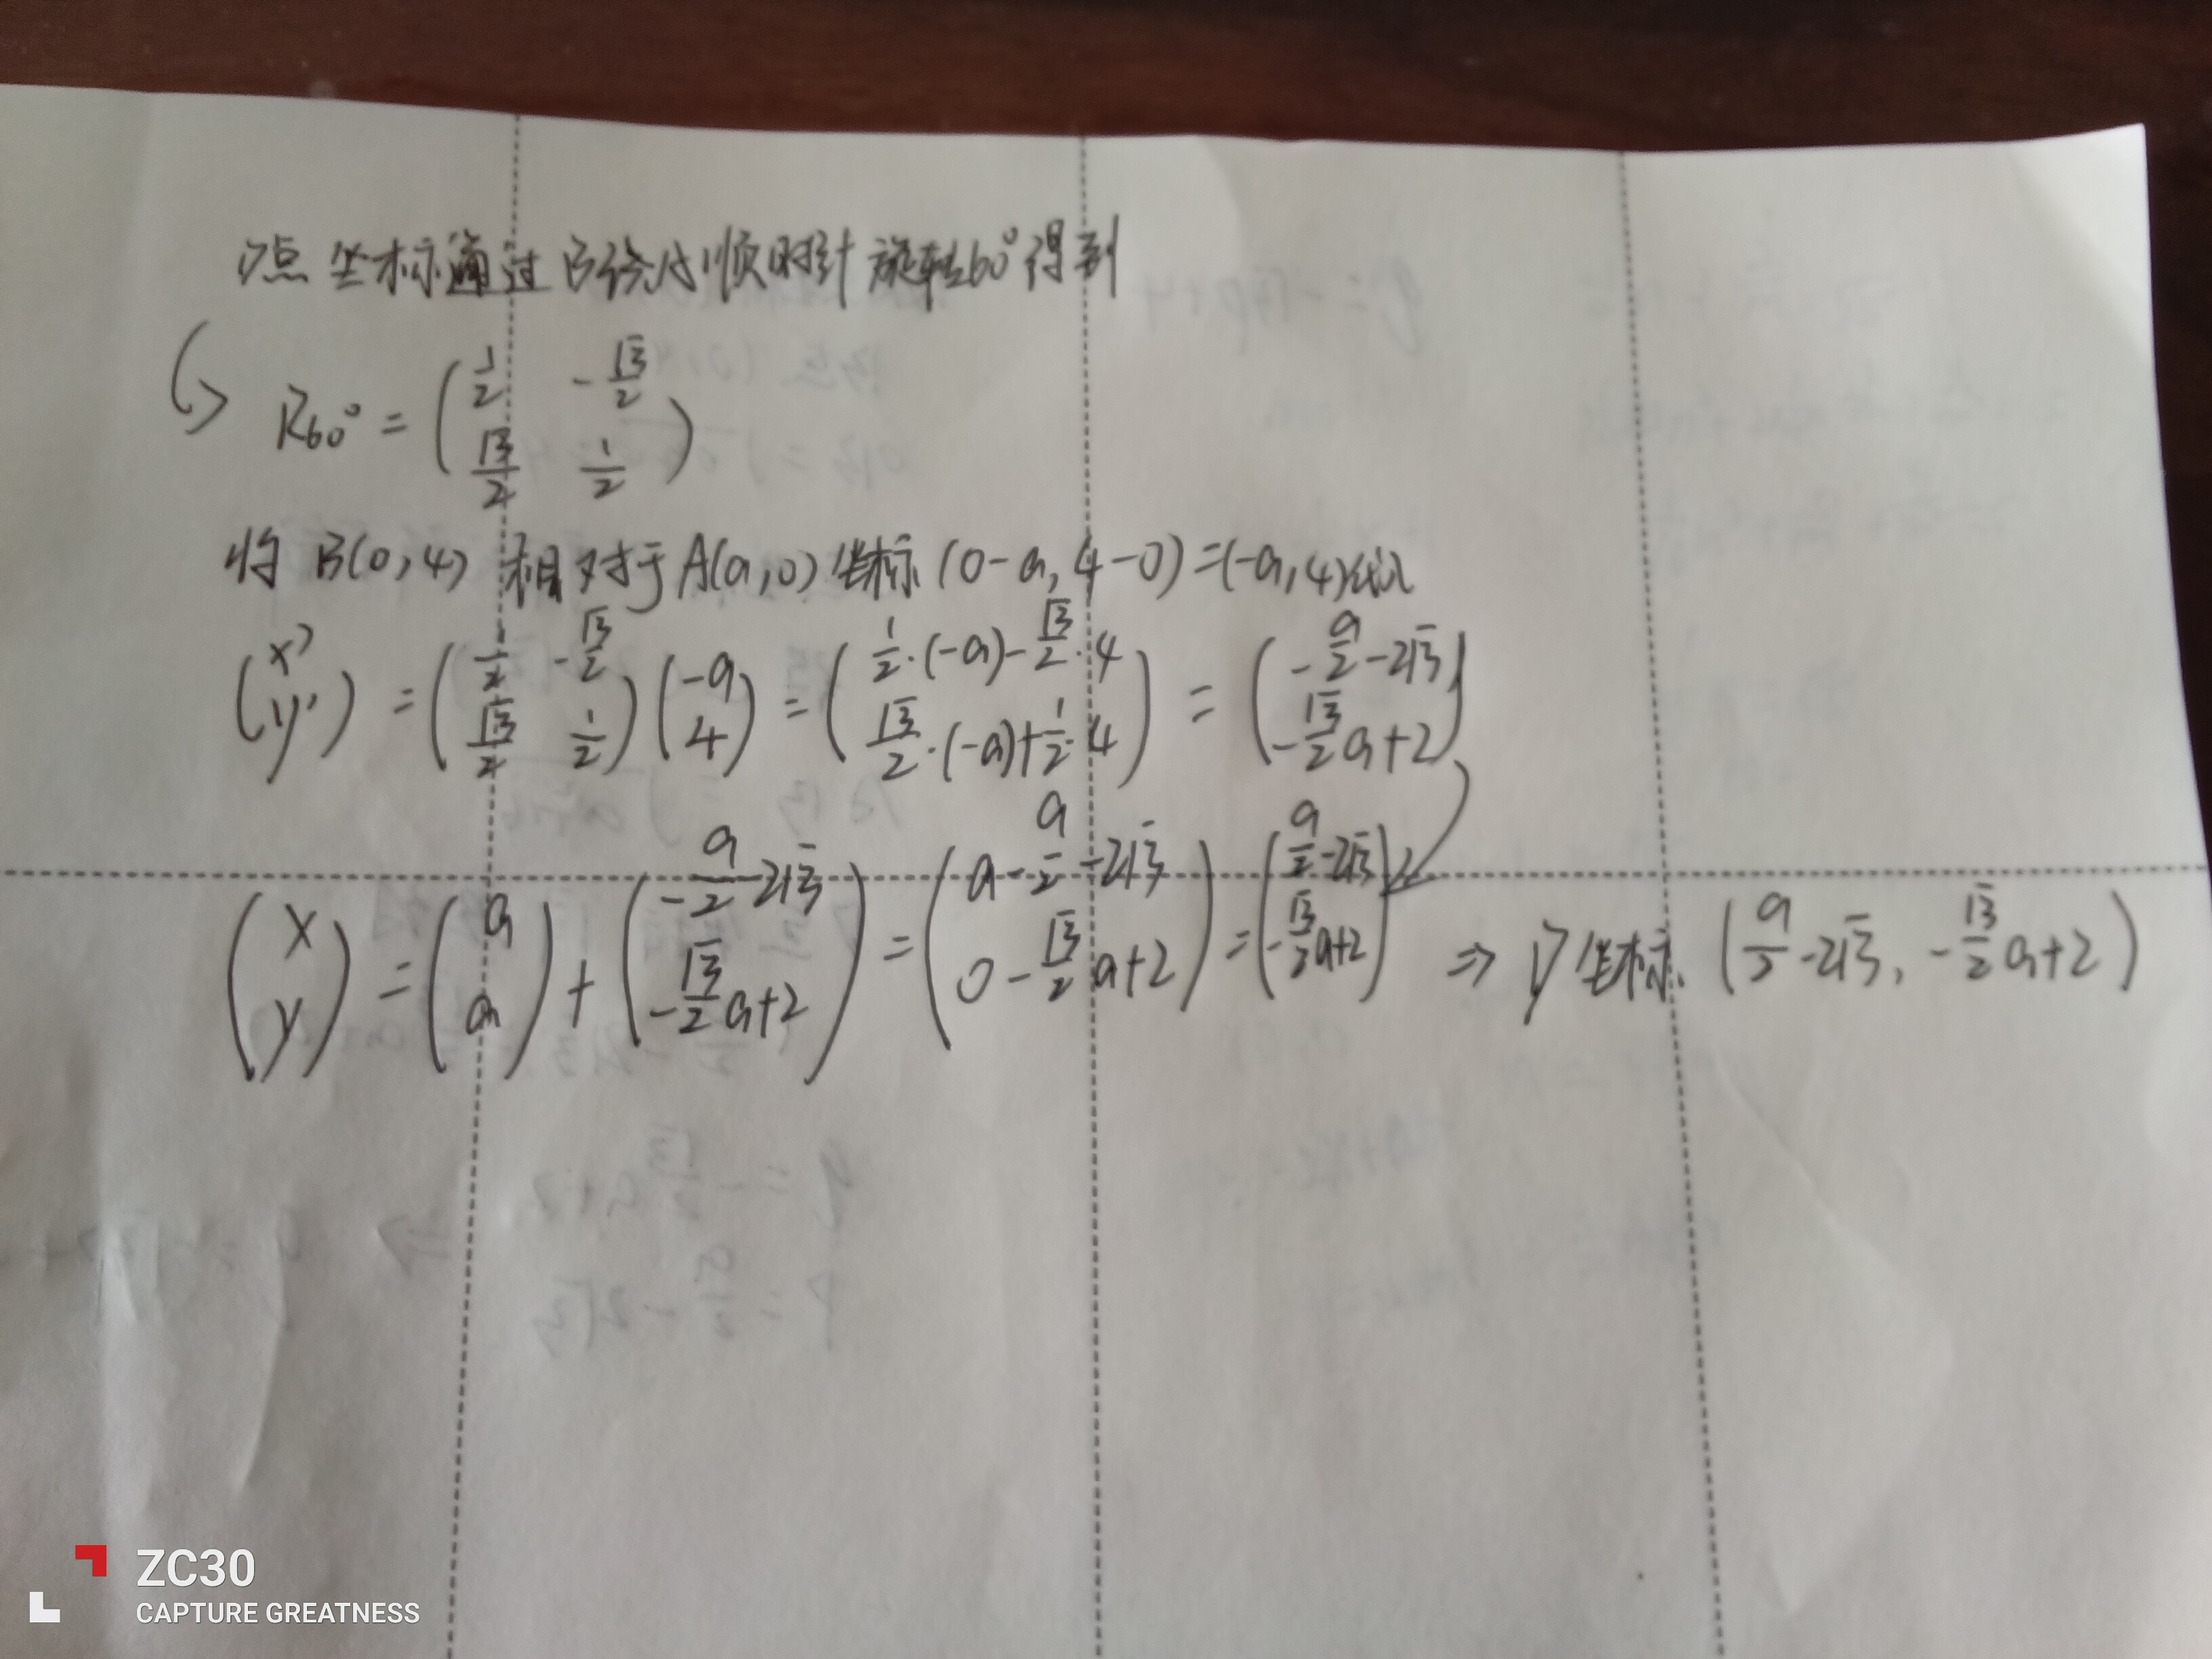 点坐标通过B绕A顺时针旋转60°得到
R60° = ( 1/2 -√3/2 ; √3/2 1/2 )
将 B(0,4) 相对于A(a,0)坐标(0-a,4-0)=(-a,4)代入
( x' ; y' ) = ( 1/2 -√3/2 ; √3/2 1/2 ) ( -a ; 4 ) = ( 1/2·(-a)-√3/2·4 ; √3/2·(-a)+1/2·4 ) = ( -a/2-2√3 ; -√3/2a+2 )
( x ; y ) = ( a ; ) + ( -a/2-2√3 ; -√3/2a+2 ) = ( a-a/2-2√3 ; 0-√3/2a+2 ) = ( a/2-2√3 ; -√3/2a+2 ) ⇒ 坐标 ( a/2-2√3, -√3/2a+2 )
ZC30
CAPTURE GREATNESS